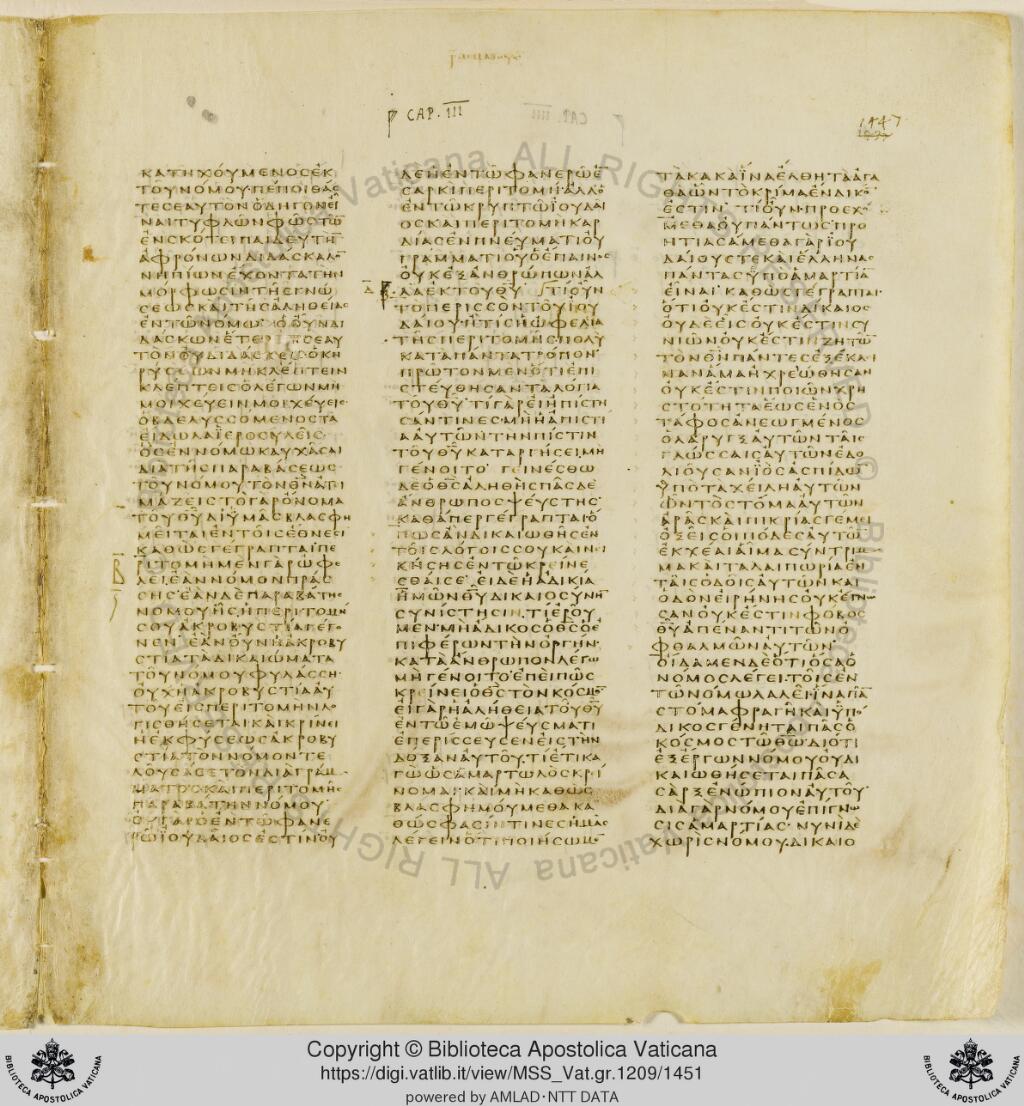 CAP. III
1447
ΚΑΤΗΧΟΥΜΕΝΟΣ ΕΚ
ΤΟΥ ΝΟΜΟΥ ΠΕΠΟΙΘΑΣ
ΤΕ ΣΕΑΥΤΟΝ ΟΔΗΓΟΝ ΕΙ
ΝΑΙ ΤΥΦΛΩΝ ΦΩΣ ΤΩ
ΕΝ ΣΚΟΤΕΙ ΠΑΙΔΕΥΤΗ
ΑΦΡΟΝΩΝ ΔΙΔΑΣΚΑΛΟ
ΝΗΠΙΩΝ ΕΧΟΝΤΑ ΤΗΝ
ΜΟΡΦΩΣΙΝ ΤΗΣ ΓΝΩ
ΣΕΩΣ ΚΑΙ ΤΗΣ ΑΛΗΘΕΙΑΣ
ΕΝ ΤΩ ΝΟΜΩ Ο ΟΥΝ ΔΙ
ΔΑΣΚΩΝ ΕΤΕΡΟΝ ΣΕΑΥ
ΤΟΝ ΟΥ ΔΙΔΑΣΚΕΙΣ Ο ΚΗ
ΡΥΣΣΩΝ ΜΗ ΚΛΕΠΤΕΙΝ
ΚΛΕΠΤΕΙΣ Ο ΛΕΓΩΝ ΜΗ
ΜΟΙΧΕΥΕΙΝ ΜΟΙΧΕΥΕΙΣ
Ο ΒΔΕΛΥΣΣΟΜΕΝΟΣ ΤΑ
ΕΙΔΩΛΑ ΙΕΡΟΣΥΛΕΙΣ
ΟΣ ΕΝ ΝΟΜΩ ΚΑΥΧΑΣΑΙ
ΔΙΑ ΤΗΣ ΠΑΡΑΒΑΣΕΩΣ
ΤΟΥ ΝΟΜΟΥ ΤΟΝ ΘΝ ΑΤΙ
ΜΑΖΕΙΣ ΤΟ ΓΑΡ ΟΝΟΜΑ
ΤΟΥ ΘΥ ΔΙ ΥΜΑΣ ΒΛΑΣΦΗ
ΜΕΙΤΑΙ ΕΝ ΤΟΙΣ ΕΘΝΕΣΙ
ΚΑΘΩΣ ΓΕΓΡΑΠΤΑΙ ΠΕ
ΡΙΤΟΜΗ ΜΕΝ ΓΑΡ ΩΦΕ
ΛΕΙ ΕΑΝ ΝΟΜΟΝ ΠΡΑΣ
ΣΗΣ ΕΑΝ ΔΕ ΠΑΡΑΒΑΤΗΣ
ΝΟΜΟΥ ΗΣ Η ΠΕΡΙΤΟΜΗ
ΣΟΥ ΑΚΡΟΒΥΣΤΙΑ ΓΕΓΟ
ΝΕΝ ΕΑΝ ΟΥΝ Η ΑΚΡΟΒΥ
ΣΤΙΑ ΤΑ ΔΙΚΑΙΩΜΑΤΑ
ΤΟΥ ΝΟΜΟΥ ΦΥΛΑΣΣΗ
ΟΥΧ Η ΑΚΡΟΒΥΣΤΙΑ ΑΥ
ΤΟΥ ΕΙΣ ΠΕΡΙΤΟΜΗΝ ΛΟ
ΓΙΣΘΗΣΕΤΑΙ ΚΑΙ ΚΡΙΝΕΙ
Η ΕΚ ΦΥΣΕΩΣ ΑΚΡΟΒΥ
ΣΤΙΑ ΤΟΝ ΝΟΜΟΝ ΤΕ
ΛΟΥΣΑ ΣΕ ΤΟΝ ΔΙΑ ΓΡΑΜ
ΜΑΤΟΣ ΚΑΙ ΠΕΡΙΤΟΜΗΣ
ΠΑΡΑΒΑΤΗΝ ΝΟΜΟΥ
ΟΥ ΓΑΡ Ο ΕΝ ΤΩ ΦΑΝΕ
ΡΩ ΙΟΥΔΑΙΟΣ ΕΣΤΙΝ ΟΥ
ΔΕ Η ΕΝ ΤΩ ΦΑΝΕΡΩ Ε
ΣΑΡΚΙ ΠΕΡΙΤΟΜΗ ΑΛΛ Ο
ΕΝ ΤΩ ΚΡΥΠΤΩ ΙΟΥΔΑΙ
ΟΣ ΚΑΙ ΠΕΡΙΤΟΜΗ ΚΑΡ
ΔΙΑΣ ΕΝ ΠΝΕΥΜΑΤΙ ΟΥ
ΓΡΑΜΜΑΤΙ ΟΥ Ο ΕΠΑΙΝΟΣ
ΟΥΚ ΕΞ ΑΝΘΡΩΠΩΝ ΑΛ
ΛΑ ΕΚ ΤΟΥ ΘΥ ΤΙ ΟΥΝ
ΤΟ ΠΕΡΙΣΣΟΝ ΤΟΥ ΙΟΥ
ΔΑΙΟΥ Η ΤΙΣ Η ΩΦΕΛΙΑ
ΤΗΣ ΠΕΡΙΤΟΜΗΣ ΠΟΛΥ
ΚΑΤΑ ΠΑΝΤΑ ΤΡΟΠΟΝ
ΠΡΩΤΟΝ ΜΕΝ ΟΤΙ ΕΠΙ
ΣΤΕΥΘΗΣΑΝ ΤΑ ΛΟΓΙΑ
ΤΟΥ ΘΥ ΤΙ ΓΑΡ ΕΙ ΗΠΙΣΤΗ
ΣΑΝ ΤΙΝΕΣ ΜΗ Η ΑΠΙΣΤΙ
Α ΑΥΤΩΝ ΤΗΝ ΠΙΣΤΙΝ
ΤΟΥ ΘΥ ΚΑΤΑΡΓΗΣΕΙ ΜΗ
ΓΕΝΟΙΤΟ ΓΕΙΝΕΣΘΩ
ΔΕ Ο ΘΣ ΑΛΗΘΗΣ ΠΑΣ ΔΕ
ΑΝΘΡΩΠΟΣ ΨΕΥΣΤΗΣ
ΚΑΘΑΠΕΡ ΓΕΓΡΑΠΤΑΙ Ο
ΠΩΣ ΑΝ ΔΙΚΑΙΩΘΗΣ ΕΝ
ΤΟΙΣ ΛΟΓΟΙΣ ΣΟΥ ΚΑΙ ΝΙ
ΚΗΣΗΣ ΕΝ ΤΩ ΚΡΕΙΝΕ
ΣΘΑΙ ΣΕ ΕΙ ΔΕ Η ΑΔΙΚΙΑ
ΗΜΩΝ ΘΥ ΔΙΚΑΙΟΣΥΝΗ
ΣΥΝΙΣΤΗΣΙΝ ΤΙ ΕΡΟΥ
ΜΕΝ ΜΗ ΑΔΙΚΟΣ Ο ΘΣ Ο Ε
ΠΙΦΕΡΩΝ ΤΗΝ ΟΡΓΗΝ
ΚΑΤΑ ΑΝΘΡΩΠΟΝ ΛΕΓΩ
ΜΗ ΓΕΝΟΙΤΟ ΕΠΕΙ ΠΩΣ
ΚΡΕΙΝΕΙ Ο ΘΣ ΤΟΝ ΚΟΣΜΟ
ΕΙ ΓΑΡ Η ΑΛΗΘΕΙΑ ΤΟΥ ΘΥ
ΕΝ ΤΩ ΕΜΩ ΨΕΥΣΜΑΤΙ
ΕΠΕΡΙΣΣΕΥΣΕΝ ΕΙΣ ΤΗΝ
ΔΟΞΑΝ ΑΥΤΟΥ ΤΙ ΕΤΙ ΚΑ
ΓΩ ΩΣ ΑΜΑΡΤΩΛΟΣ ΚΡΙ
ΝΟΜΑΙ ΚΑΙ ΜΗ ΚΑΘΩΣ
ΒΛΑΣΦΗΜΟΥΜΕΘΑ ΚΑ
ΘΩΣ ΦΑΣΙΝ ΤΙΝΕΣ ΗΜΑΣ
ΛΕΓΕΙΝ ΟΤΙ ΠΟΙΗΣΩΜΕ
ΤΑ ΚΑΚΑ ΙΝΑ ΕΛΘΗ ΤΑ ΑΓΑ
ΘΑ ΩΝ ΤΟ ΚΡΙΜΑ ΕΝΔΙΚΟ
ΕΣΤΙΝ ΤΙ ΟΥΝ ΠΡΟΕΧΟ
ΜΕΘΑ ΟΥ ΠΑΝΤΩΣ ΠΡΟ
ΗΤΙΑΣΑΜΕΘΑ ΓΑΡ ΙΟΥ
ΔΑΙΟΥΣ ΤΕ ΚΑΙ ΕΛΛΗΝΑΣ
ΠΑΝΤΑΣ ΥΠΟ ΑΜΑΡΤΙΑ
ΕΙΝΑΙ ΚΑΘΩΣ ΓΕΓΡΑΠΤΑΙ
ΟΤΙ ΟΥΚ ΕΣΤΙΝ ΔΙΚΑΙΟΣ
ΟΥΔΕ ΕΙΣ ΟΥΚ ΕΣΤΙΝ ΣΥ
ΝΙΩΝ ΟΥΚ ΕΣΤΙΝ ΖΗΤΩ
ΤΟΝ ΘΝ ΠΑΝΤΕΣ ΕΞΕΚΛΙ
ΝΑΝ ΑΜΑ ΗΧΡΕΩΘΗΣΑΝ
ΟΥΚ ΕΣΤΙΝ ΠΟΙΩΝ ΧΡΗ
ΣΤΟΤΗΤΑ ΕΩΣ ΕΝΟΣ
ΤΑΦΟΣ ΑΝΕΩΓΜΕΝΟΣ
Ο ΛΑΡΥΓΞ ΑΥΤΩΝ ΤΑΙΣ
ΓΛΩΣΣΑΙΣ ΑΥΤΩΝ ΕΔΟ
ΛΙΟΥΣΑΝ ΙΟΣ ΑΣΠΙΔΩ
ΥΠΟ ΤΑ ΧΕΙΛΗ ΑΥΤΩΝ
ΩΝ ΤΟ ΣΤΟΜΑ ΑΥΤΩΝ
ΑΡΑΣ ΚΑΙ ΠΙΚΡΙΑΣ ΓΕΜΕΙ
ΟΞΕΙΣ ΟΙ ΠΟΔΕΣ ΑΥΤΩ
ΕΚΧΕΑΙ ΑΙΜΑ ΣΥΝΤΡΙΜ
ΜΑ ΚΑΙ ΤΑΛΑΙΠΩΡΙΑ ΕΝ
ΤΑΙΣ ΟΔΟΙΣ ΑΥΤΩΝ ΚΑΙ
ΟΔΟΝ ΕΙΡΗΝΗΣ ΟΥΚ ΕΓΝΩ
ΣΑΝ ΟΥΚ ΕΣΤΙΝ ΦΟΒΟΣ
ΘΥ ΑΠΕΝΑΝΤΙ ΤΩΝ Ο
ΦΘΑΛΜΩΝ ΑΥΤΩΝ
ΟΙΔΑΜΕΝ ΔΕ ΟΤΙ ΟΣΑ Ο
ΝΟΜΟΣ ΛΕΓΕΙ ΤΟΙΣ ΕΝ
ΤΩ ΝΟΜΩ ΛΑΛΕΙ ΙΝΑ ΠΑ
ΣΤΟΜΑ ΦΡΑΓΗ ΚΑΙ ΥΠΟ
ΔΙΚΟΣ ΓΕΝΗΤΑΙ ΠΑΣ Ο
ΚΟΣΜΟΣ ΤΩ ΘΩ ΔΙΟΤΙ
ΕΞ ΕΡΓΩΝ ΝΟΜΟΥ ΟΥ ΔΙ
ΚΑΙΩΘΗΣΕΤΑΙ ΠΑΣΑ
ΣΑΡΞ ΕΝΩΠΙΟΝ ΑΥΤΟΥ
ΔΙΑ ΓΑΡ ΝΟΜΟΥ ΕΠΙΓΝΩ
ΣΙΣ ΑΜΑΡΤΙΑΣ ΝΥΝΙ ΔΕ
ΧΩΡΙΣ ΝΟΜΟΥ ΔΙΚΑΙΟ
Copyright © Biblioteca Apostolica Vaticana
https://digi.vatlib.it/view/MSS_Vat.gr.1209/1451
powered by AMLAD·NTT DATA